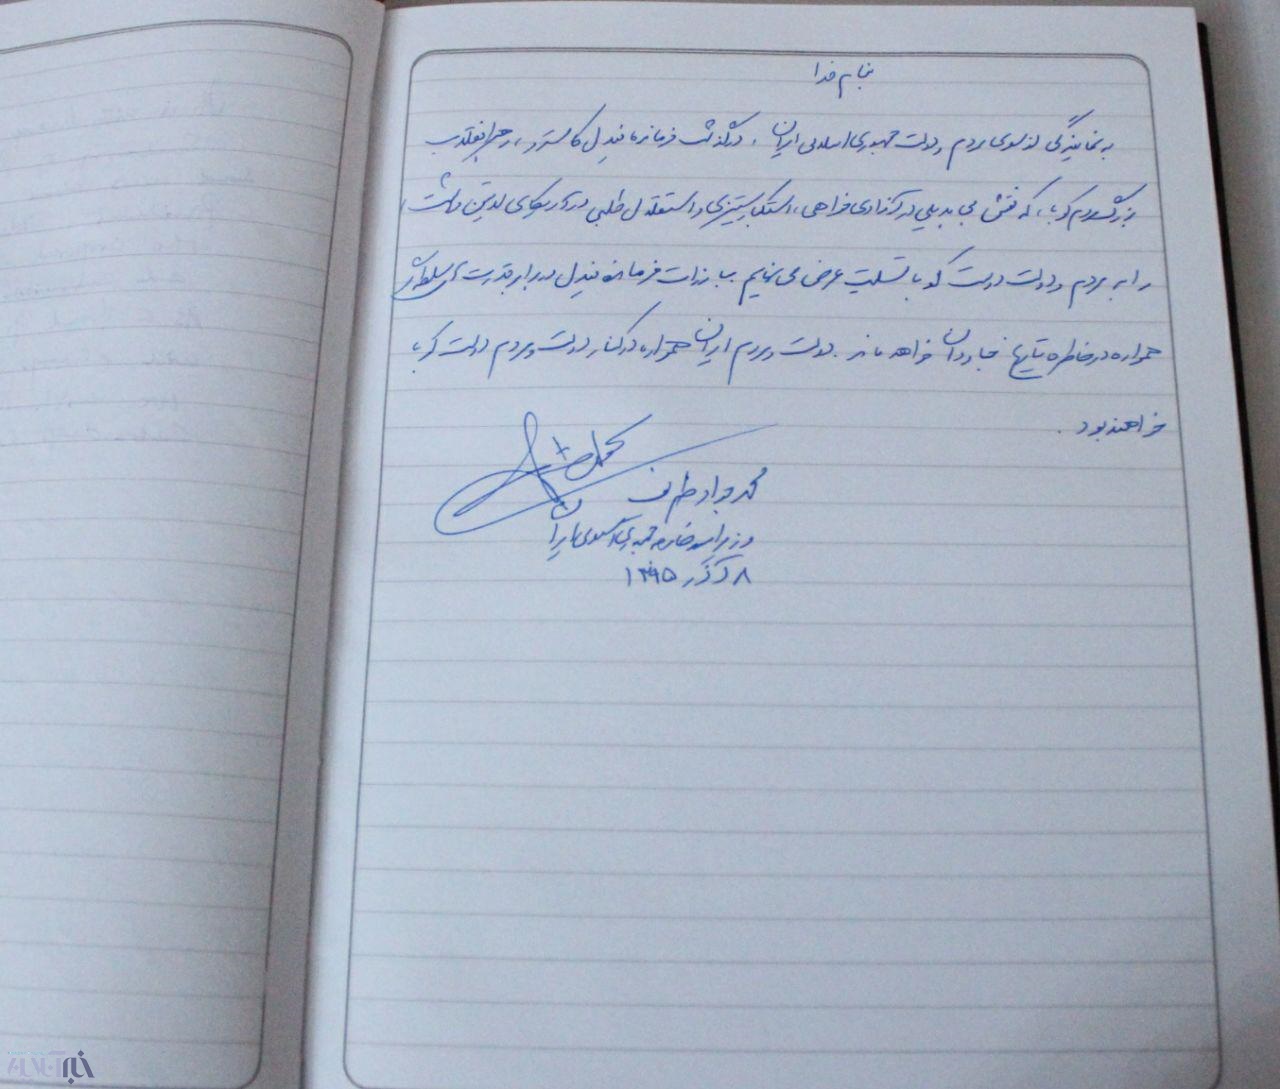 بنام خدا
به نمایندگی از سوی مردم و دولت جمهوری اسلامی ایران، درگذشت فرمانده فیدل کاسترو، رهبر انقلاب
بزرگ مردم کوبا، که نقش بی بدیلی در آزادی خواهی، استکبارستیزی و استقلال طلبی در آمریکای لاتین داشت،
را به مردم و دولت دوست کوبا تسلیت عرض می نمایم. مبارزات فرمانده فیدل در برابر قدرت های سلطه گر
همواره در خاطره تاریخ جاودان خواهد ماند. دولت و مردم ایران همواره در کنار دولت و مردم دوست کوبا
خواهند بود.
محمد جواد ظریف
وزیر امور خارجه جمهوری اسلامی ایران
۸ آذر ۱۳۹۵
خبرآنلاین